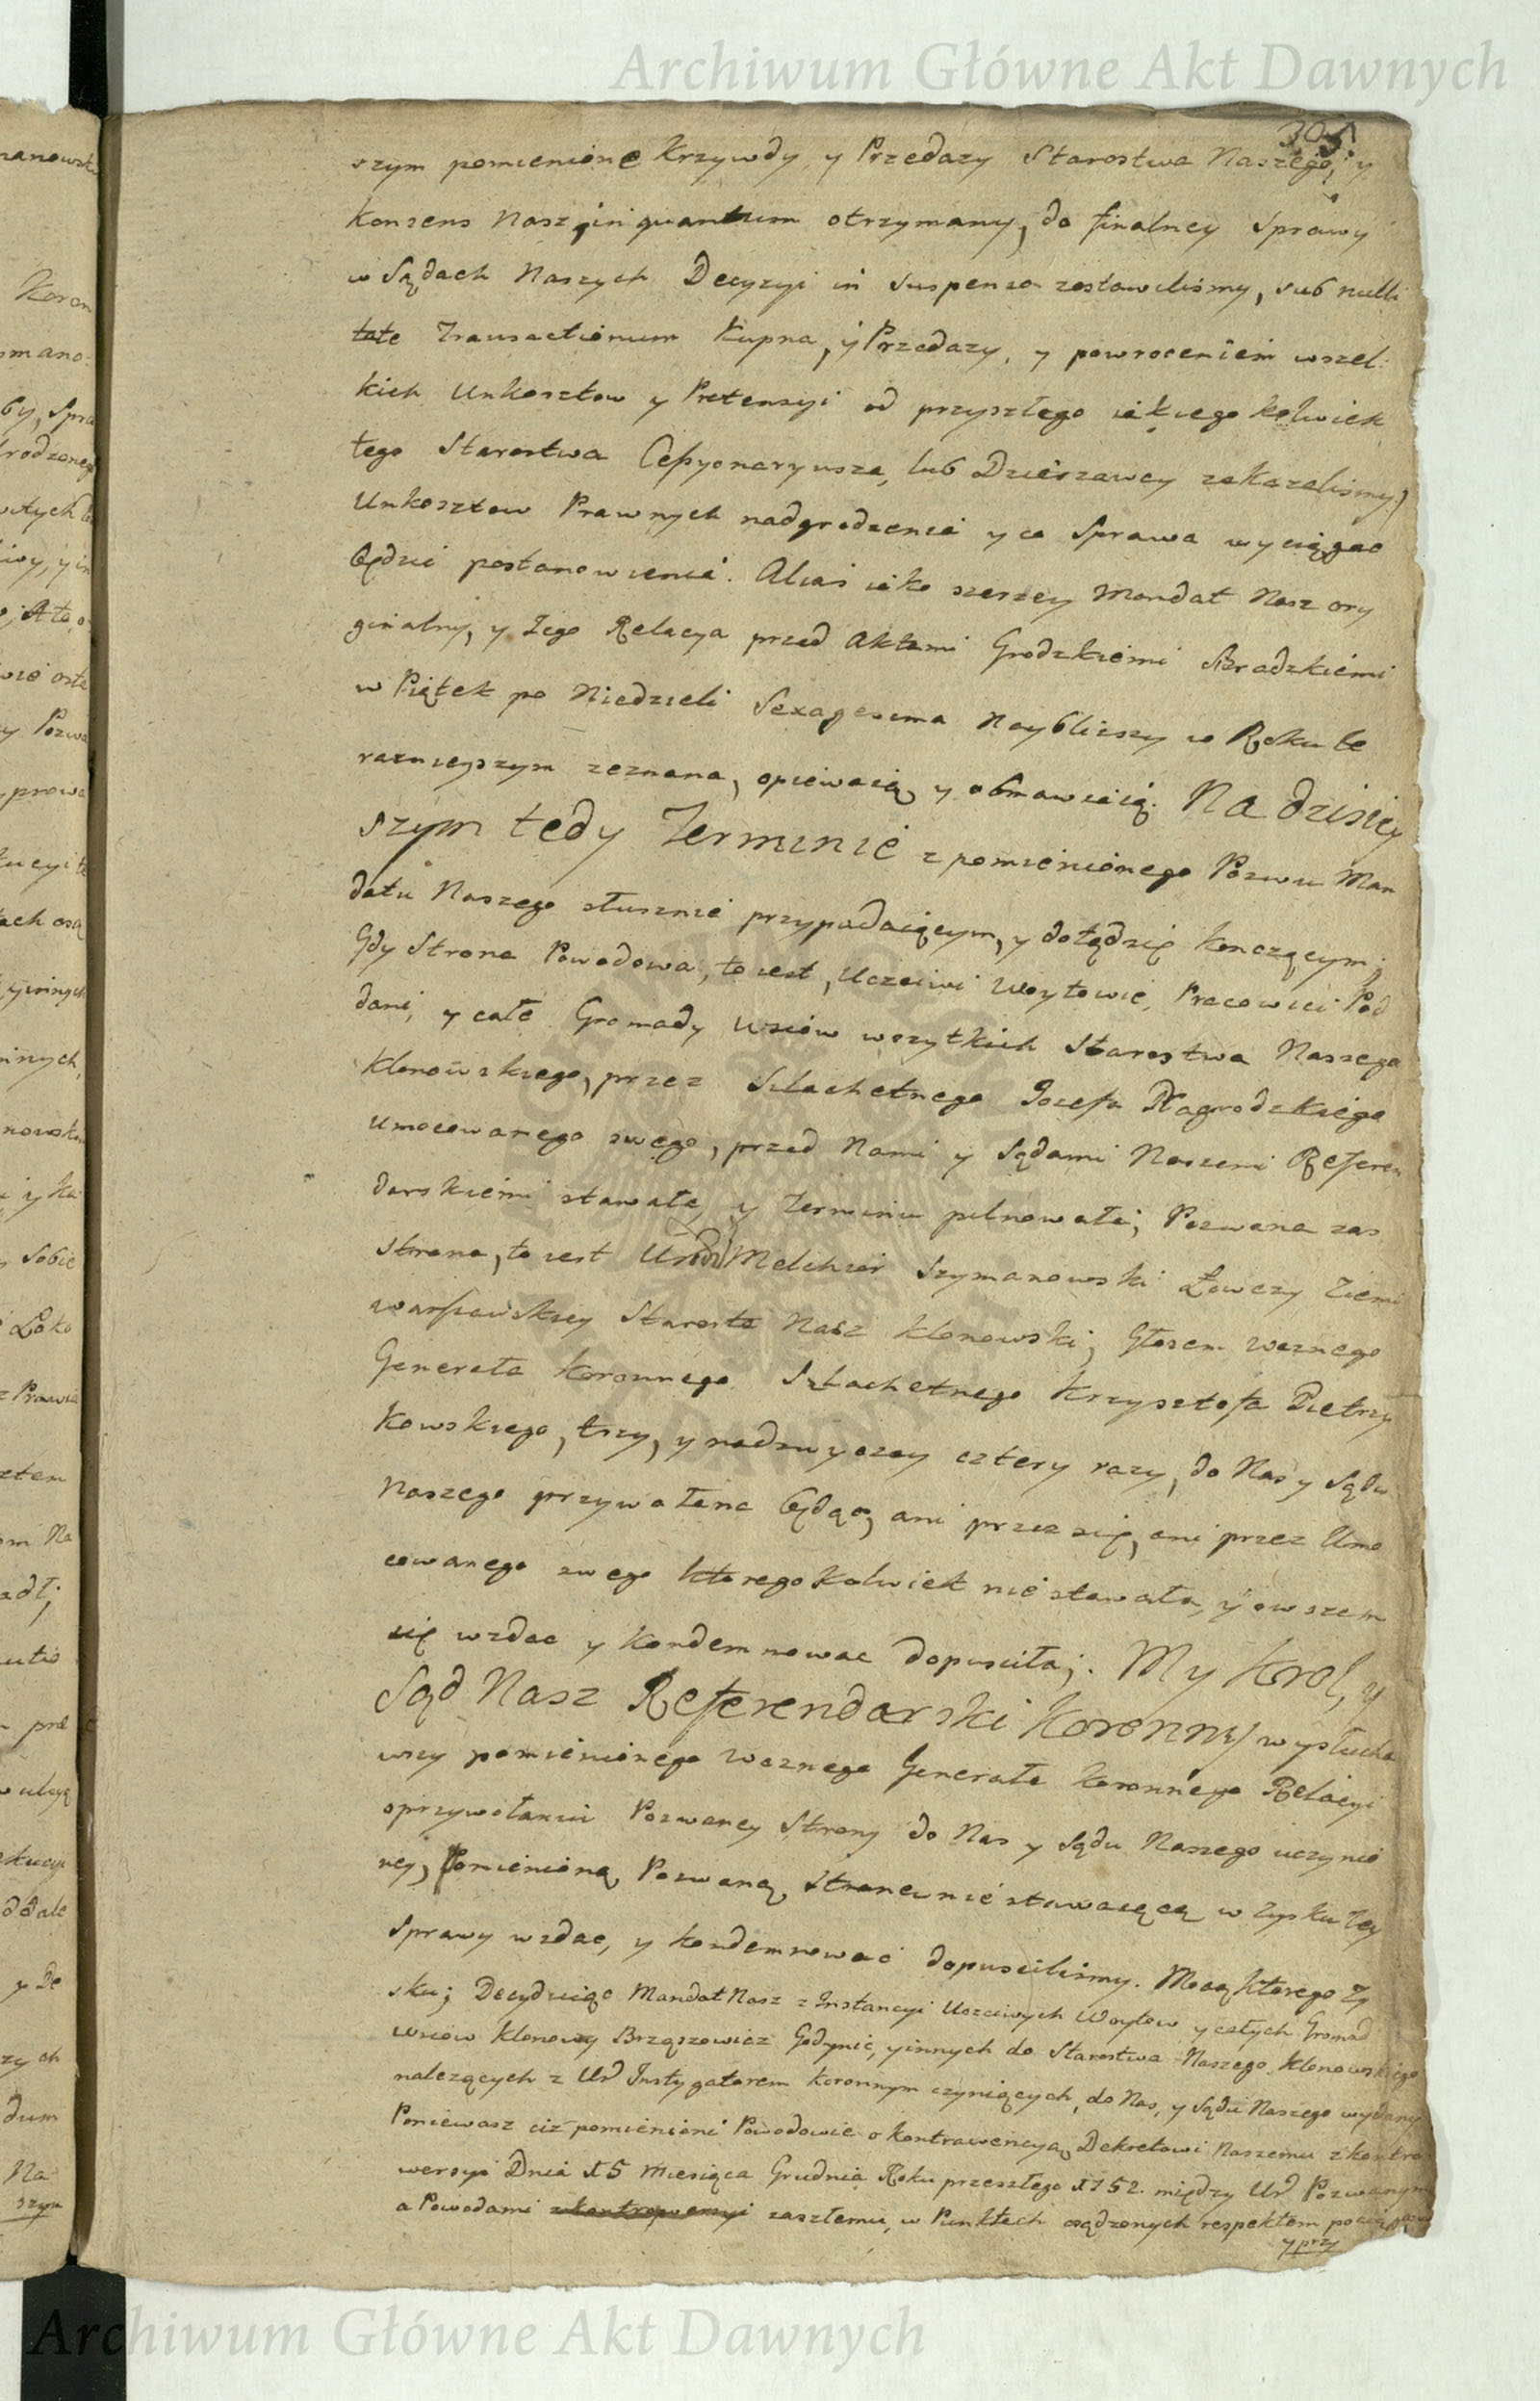 Archiwum Główne Akt Dawnych
305
szym pomienione Krzywdy, y Przedazy Starostwa Naszego, y
konsens Nasz, in quantum otrzymany, do finalney Sprawy
w Sądach Naszych Decyzyi in suspenso zostawilismy, sub nulli
tate Transactionum Kupna, y Przedazy, y powroceniem wszel
kich Unkosztow y Pretensyi od przyszłego iakiego kolwiek
tego Starostwa Cessyonaryusza, lub Dzierzawcy zakazalismy;
Unkosztow Prawnych nadgrodzenia y co Sprawa wyciągac
będzie postanowienia. Alias iako szerzey Mandat Nasz ory
ginalny, y Jego Relacya przed Aktami Grodzkiemi Sieradzkiemi
w Piątek po Niedzieli Sexagesima Nayblizszy w Roku te
raznieyszym zeznana, opiewaią y obmawiaią. Na dzisiey
szym tedy Terminie z pomienionego Pozwu Man
datu Naszego słusznie przypadaiącym, y dotądsię konczącym;
Gdy Strona Powodowa, to iest, Uczciwi Woytowie, Pracowici Pod
dani, y całe Gromady Wsiow wszytkich Starostwa Naszego
Klonowskiego, przez Szlachetnego Jozefa Nagrodzkiego
Umocowanego swego, przed Nami y Sądami Naszemi Referen
darskiemi stawała, y Terminu pilnowała; Pozwana zas
Strona, to iest Urodz Melchior Szymanowski Łowczy Ziemi
warszawskiey Starosta Nasz Klonowski; Głosem woznego
Generała Koronnego Szlachetnego Krzysztofa Pietrzy
kowskiego, trzy, y nadzwyczay cztery razy, do Nas y Sądu
Naszego przywołana będąc, ani przez się, ani przez Umo
cowanego swego ktoregokolwiek nie stawała, y owszem
się wzdac y kondemnowac dopusciła;. My Krol, y
Sąd Nasz Referendarski Koronny wysłucha
wszy pomienionego woznego Generała Koronnego Relacyi
oprzywołaniu Pozwaney Strony do Nas y Sądu Naszego uczynio
ney, Pomienioną Pozwaną Stronę nie stawaiącą w Zysku tey
Sprawy wzdac, y kondemnowac dopuscilismy. Mocą ktorego Zy
sku; Decyduiąc Mandat Nasz z Instancyi Uczciwych Woytow y całych Gromad
Wsiow Klonowy Brząszowicz Godynic, y innych do Starostwa Naszego Klonowskiego
nalezących z Ur Instygatorem Koronnym czyniących, do Nas, y Sądu Naszego wydany
Poniewasz ciz pomienieni Powodowie o kontrawencyą Dekretowi Naszemu z kontro
wersyi Dnia 15 Miesiąca Grudnia Roku przeszłego 1752. między Ur Pozwanym
a Powodami zaszłemu, w Punktach osądzonych respektem
y przy
Archiwum Główne Akt Dawnych